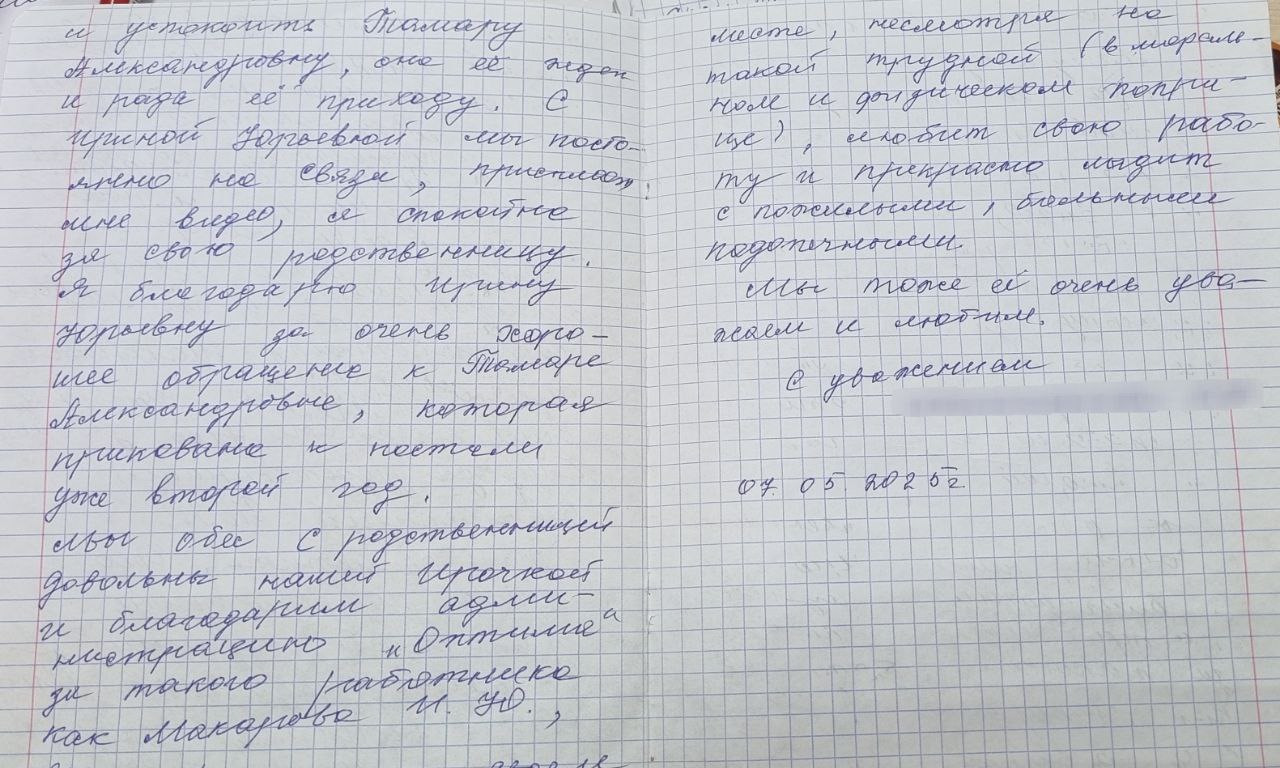 и успокоить Тамару
Александровну, она её ждет
и рада её приходу. С
Ириной Юрьевной мы посто-
янно на связи, присылает
мне видео, я спокойна
за свою родственницу.
Я благодарю Ирину
Юрьевну за очень хоро-
шее обращение к Тамаре
Александровне, которая
прикована к постели
уже второй год.
Мы обе с родственницей
довольны нашей Ирочкой
и благодарим адми-
нистрацию "Оптима"
за такого работника
как Макарова И. Ю.,
месте, несмотря на
такой трудной (в мораль-
ном и физическом попри-
ще), любит свою рабо-
ту и прекрасно ладит
с пожилыми, больными
подопечными.
Мы тоже её очень ува-
жаем и любим.
С уважением
07. 05. 2025г